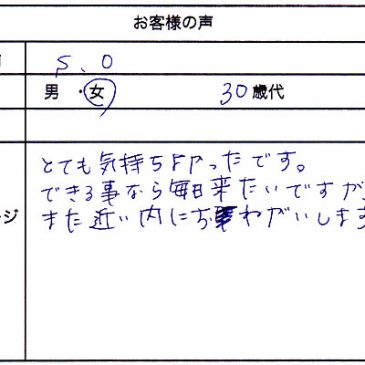 お客様の声
S、O
男 ・女 30歳代
とても気持ちよかったです。
できる事なら毎日来たいですが、
ージ
また近い内におねがいします